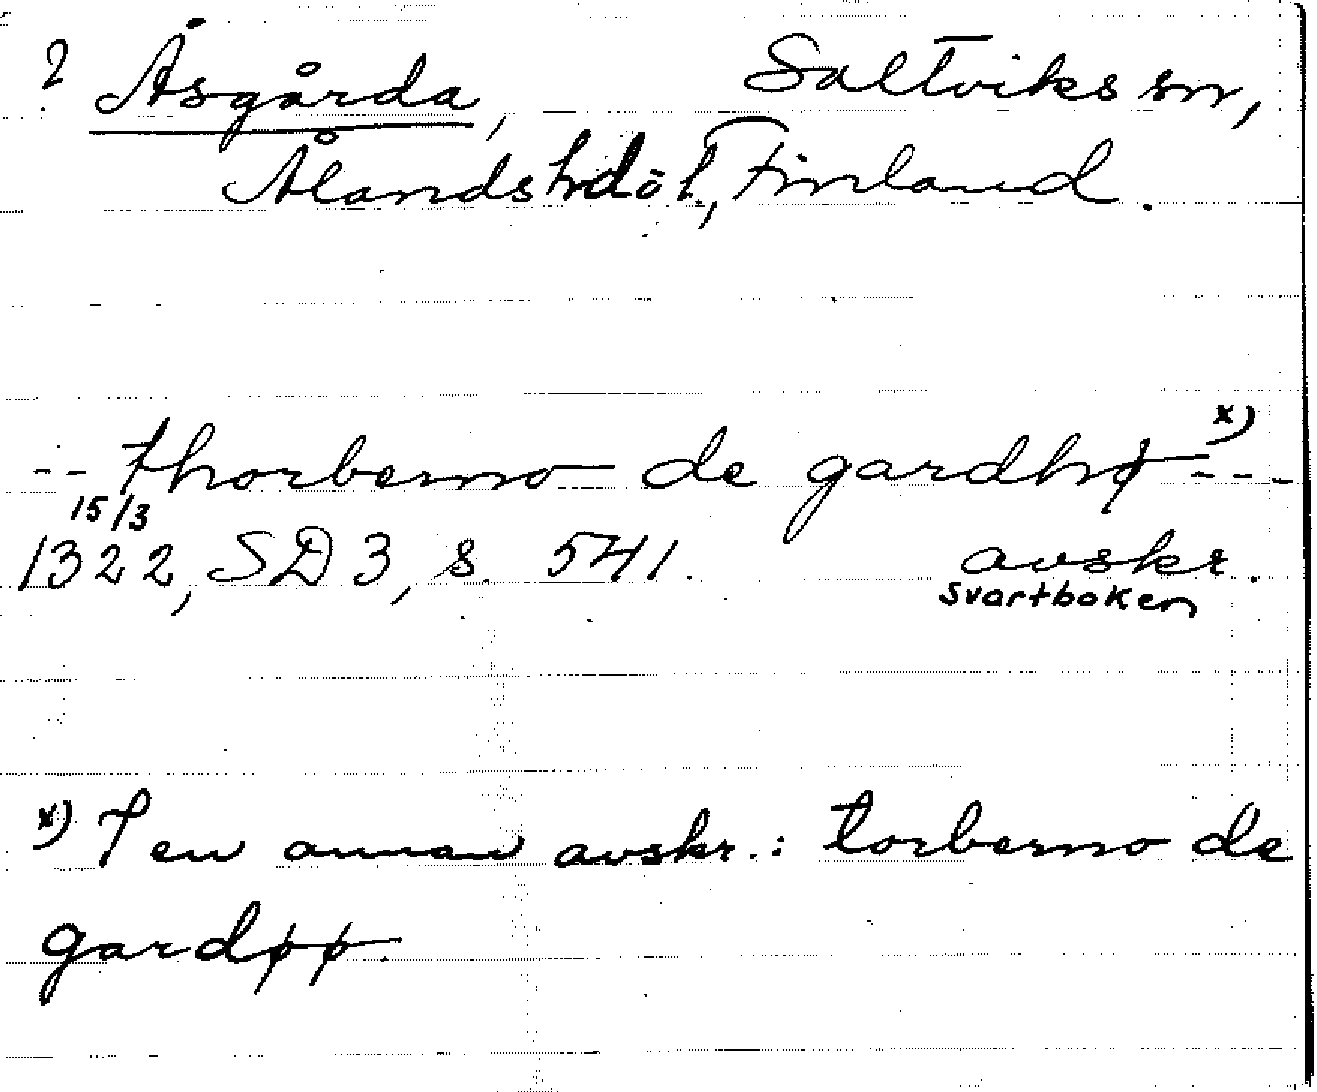 ? Åsgårda, Saltviks sn,
Ålands hdöl, Finland.
-- thorberno de gardhø x) ---
15/3
1322, SD 3, s. 541. avskr.
svartboken
x) I en annan avskr.: torberno de
gardøø.